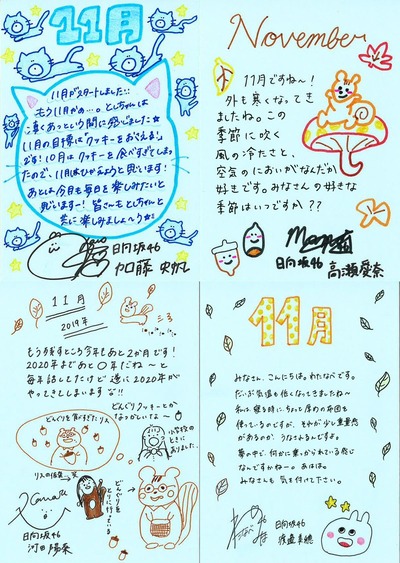 11月
11月がスタートしました!!
もう11月かぁ…。としちゃんは
凄くあっという間に感じました☆
11月の目標はクッキーをおさえる
です!10月はクッキーを食べすぎてしまっ
たので、11月はひかえようと思います!
あとは今月も毎日を楽しみたいと
思いまーす!皆さーもとしちゃんと
共に楽しみましょ〜う☆
日向坂46
加藤 史帆
November
11月ですね〜!
外も寒くなってき
ましたね。この
季節に吹く
風の冷たさと、
空気のにおいがなんだか
好きです。みなさんの好きな
季節はいつですか??
日向坂46
高瀬愛奈
11月
2019年
もう残すところ今年もあと2か月です!
2020年まであと〇年だね〜と
毎年話してたけど遂に2020年が
やってきてしまいますな!!
どんぐりを食べすぎたリス
どんぐりクッキーとか
なつかしいな〜
小学校の
ときに
ありました。
リスの保育
どんぐりを
とりに行っている
日向坂46
河田陽菜
11月
みなさん、こんにちは。わたなべです。
だいぶ気温も低くなってきましたね〜
私は寝る時に、ちょっと厚めの布団を
使っているのですが、それが少し重量感
があるのか、うなされるんですよ。
夢の中で、何かに乗っかられている感じ
なんですかねー。あはは。
みなさんも気を付けて下さい。
日向坂46
渡邉美穂